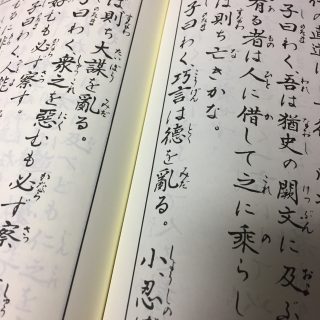 子曰わく吾は猶史の闕文に及ぶ
有る者は人に借して之に乘らし
は則ち亡きかな。
子曰わく、巧言は德を亂る。小、忍ば
は則ち大謀を亂る。
子曰わく、衆之を惡むも必ず察
好むも必ず察す。
子曰わく、人能